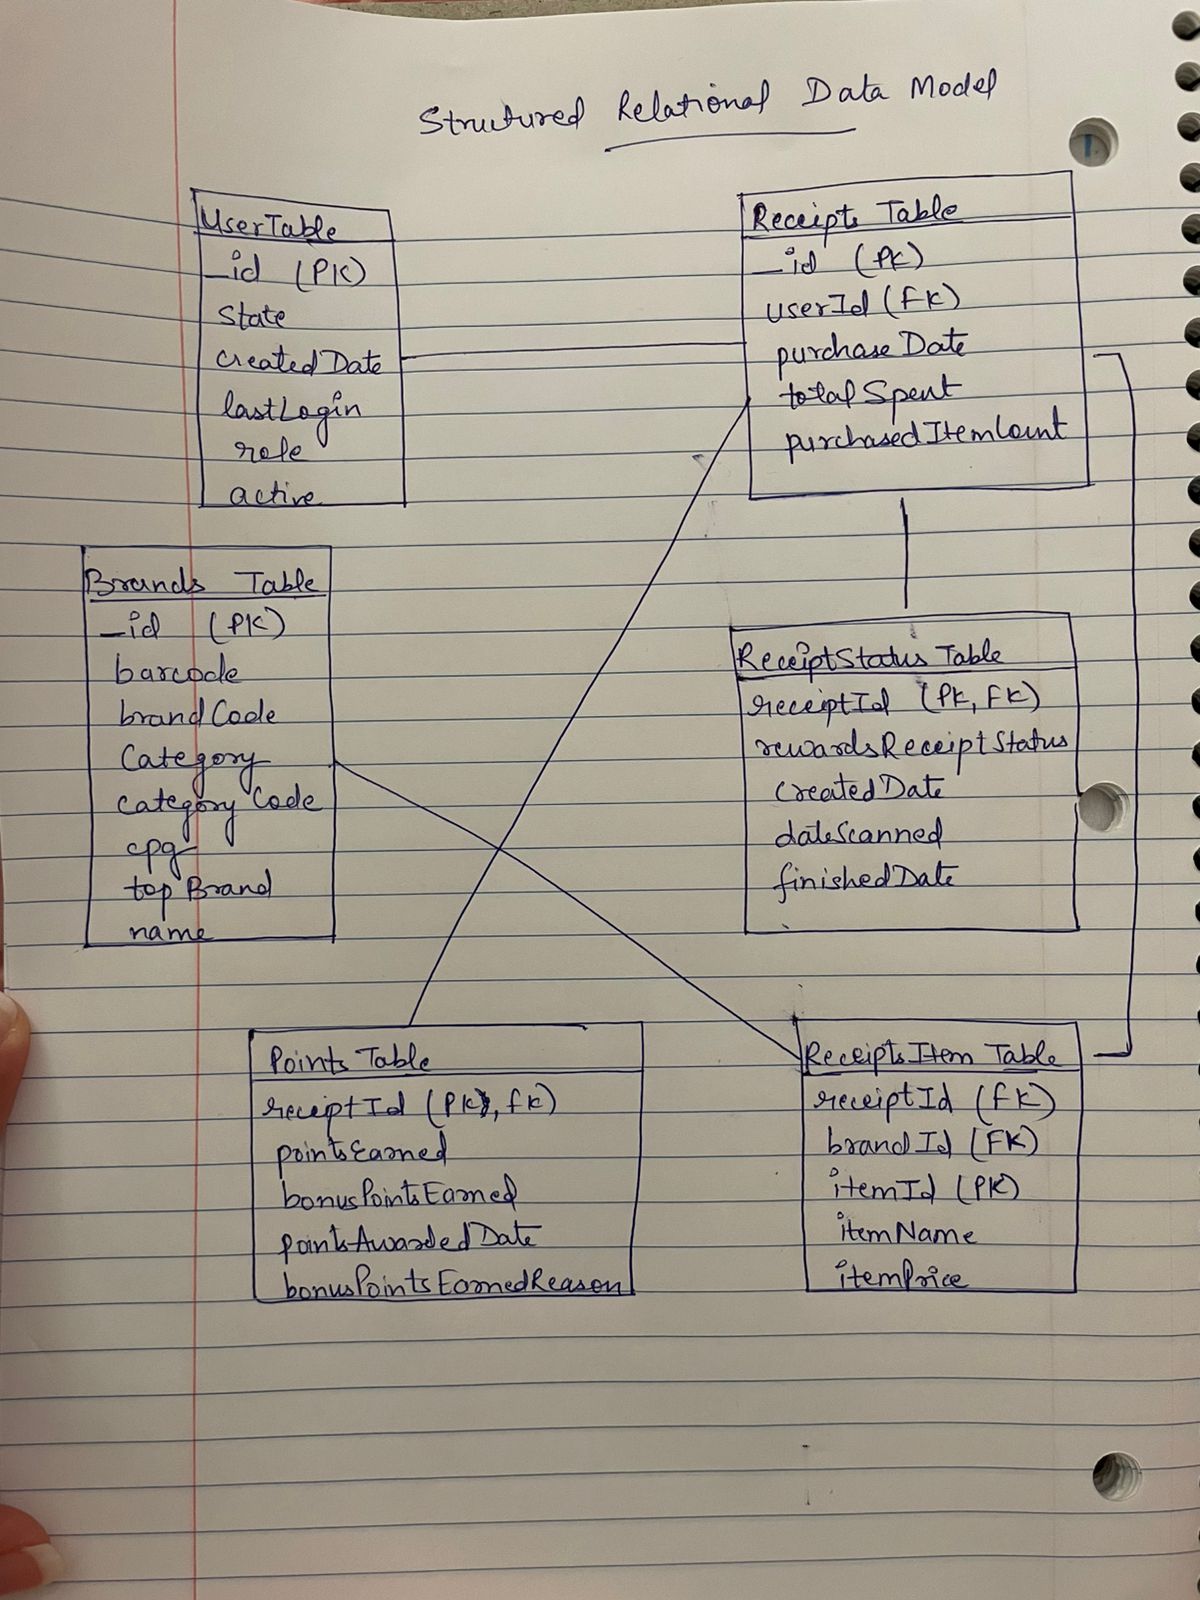 Structured Relational Data Model
UserTable
_id (PK)
state
createdDate
lastLogin
role
active
Receipts Table
_id (PK)
userId (FK)
purchaseDate
totalSpent
purchasedItemCount
Brands Table
_id (PK)
barcode
brandCode
Category
categoryCode
cpg
topBrand
name
ReceiptStatus Table
receiptId (PK, FK)
rewardsReceiptStatus
createdDate
dateScanned
finishedDate
Points Table
receiptId (PK), FK)
pointsEarned
bonusPointsEarned
pointsAwardedDate
bonusPointsEarnedReason
ReceiptsItem Table
receiptId (FK)
brandId (FK)
itemId (PK)
itemName
itemPrice